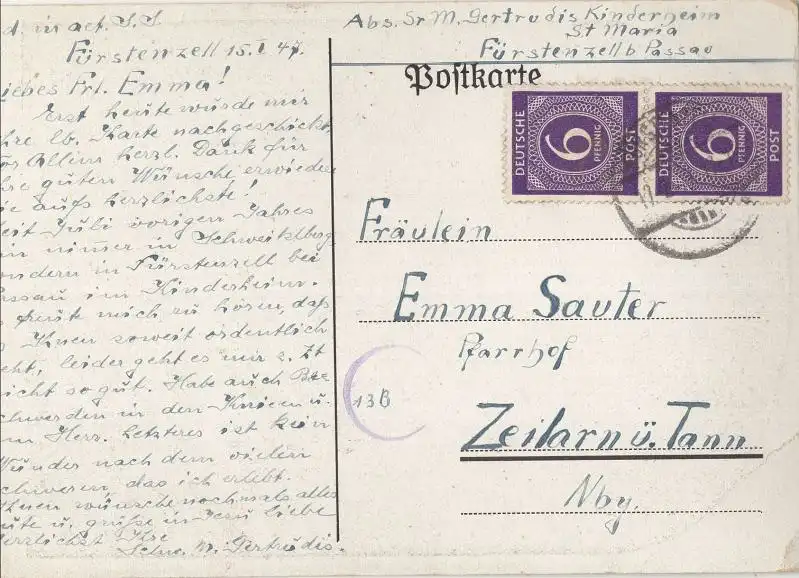 in act. S. S.
Fürstenzell 15.I.47.
Liebes Frl. Emma!
Erst heute wurde mir
lb. Karte nachgeschickt,
Allem herzl. Dank für
guten Wünsche, erwidere
aufs herzlichste!
Seit Juli vorigen Jahres
bin nimmer in
sondern in Fürstenzell bei
Passau im Kinderheim.
freut mich zu hören, daß
es Ihnen soweit ordentlich
geht, leider geht es mir z. Zt
nicht so gut. Habe auch Be=
schwerden in den Knieen u.
am Herz. Letzteres ist kein
Wunder nach dem vielen
schweren, das ich erlebt.
Ihnen wünsche nochmals alles
Gute u. grüße in Jesu Liebe
herzlichst Ihre
Schw. M. Gertrudis.
Abs. Sr M. Gertrudis Kinderheim
St Maria
Fürstenzell b Passau
Postkarte
DEUTSCHE 6 PFENNIG POST
DEUTSCHE 6 PFENNIG POST
Fräulein
Emma Sauter
Pfarrhof
13B
Zeilarn ü. Tann
Nby.